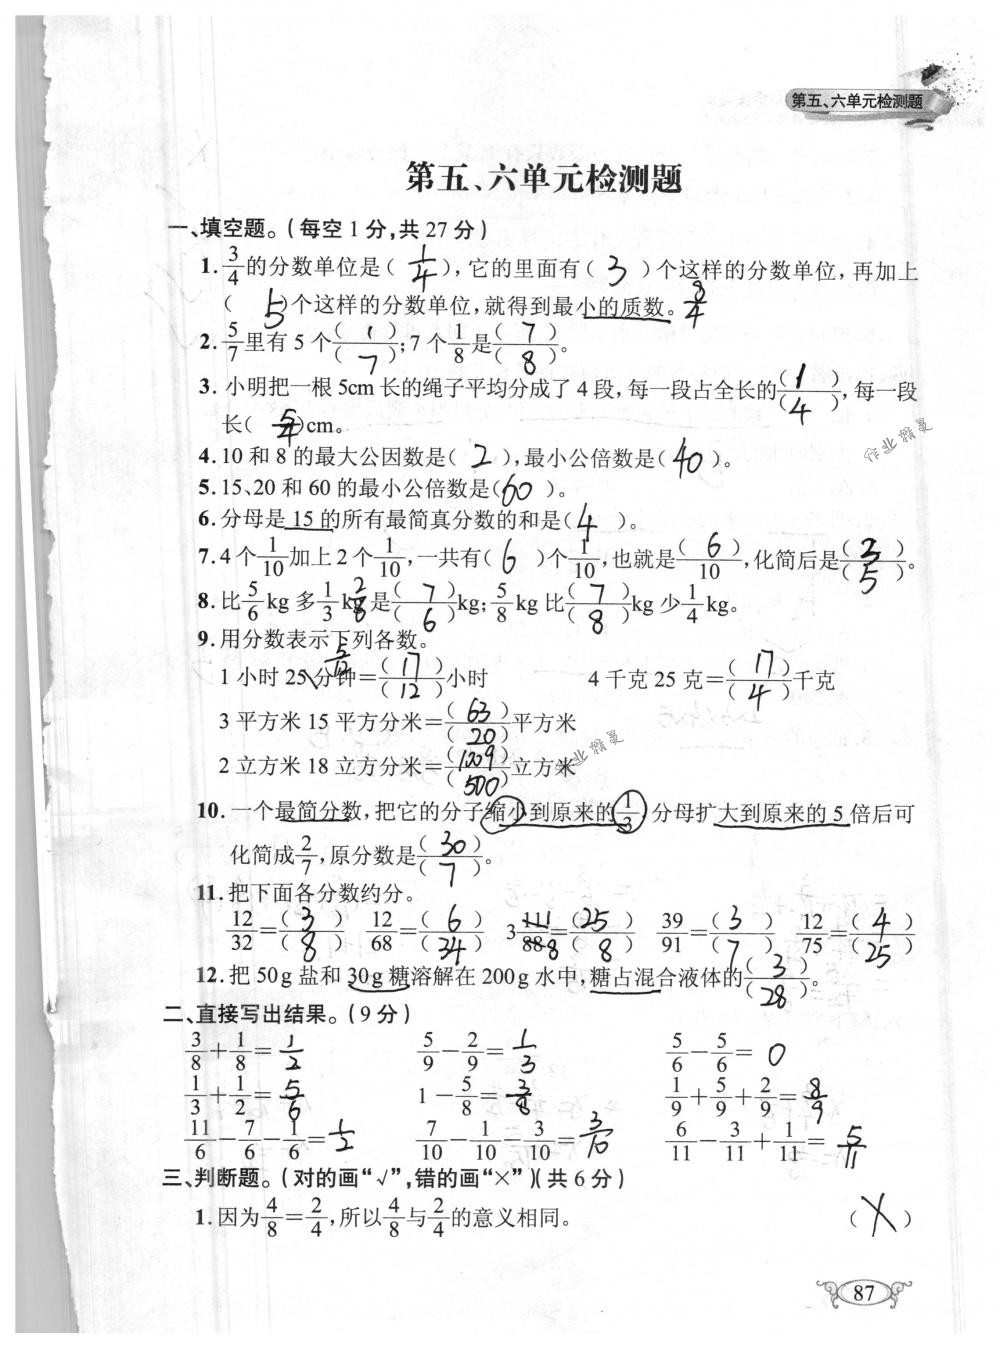 第五、六单元检测题
第五、六单元检测题
一、填空题。(每空1分,共27分)
1. 3/4的分数单位是( 1/4 ),它的里面有( 3 )个这样的分数单位,再加上
( 5 )个这样的分数单位,就得到最小的质数。8/4
2. 5/7里有5个( 1 )/( 7 );7个1/8是( 7 )/( 8 )。
3. 小明把一根5cm长的绳子平均分成了4段,每一段占全长的( 1 )/( 4 ),每一段
长( 5/4 )cm。
4. 10和8的最大公因数是( 2 ),最小公倍数是( 40 )。
5. 15、20和60的最小公倍数是( 60 )。
6. 分母是15的所有最简真分数的和是( 4 )。
7. 4个1/10加上2个1/10,一共有( 6 )个1/10,也就是( 6 )/10,化简后是( 3 )/( 5 )。
8. 比5/6 kg多1/3 kg是( 7 )/( 6 )kg;5/8 kg比( 7 )/( 8 )kg少1/4 kg。
9. 用分数表示下列各数。
5/12
1小时25分钟=( 17 )/( 12 )小时 4千克25克=( 17 )/( 4 )千克
3平方米15平方分米=( 63 )/( 20 )平方米
2立方米18立方分米=( 1009 )/( 500 )立方米
10. 一个最简分数,把它的分子缩小到原来的1/3,分母扩大到原来的5倍后可
化简成2/7,原分数是( 30 )/( 7 )。
11. 把下面各分数约分。
12/32=( 3 )/( 8 ) 12/68=( 6 )/( 34 ) 3 111/888=( 25 )/( 8 ) 39/91=( 3 )/( 7 ) 12/75=( 4 )/( 25 )
12. 把50g盐和30g糖溶解在200g水中,糖占混合液体的( 3 )/( 28 )。
二、直接写出结果。(9分)
3/8+1/8=1/2 5/9-2/9=1/3 5/6-5/6=0
1/3+1/2=5/6 1-5/8=3/8 1/9+5/9+2/9=8/9
11/6-7/6-1/6=1/2 7/10-1/10-3/10=3/10 6/11-3/11+1/11=5/11
三、判断题。(对的画“√”,错的画“×”)(共6分)
1. 因为4/8=2/4,所以4/8与2/4的意义相同。 ( × )
87
作业精灵
作业精灵